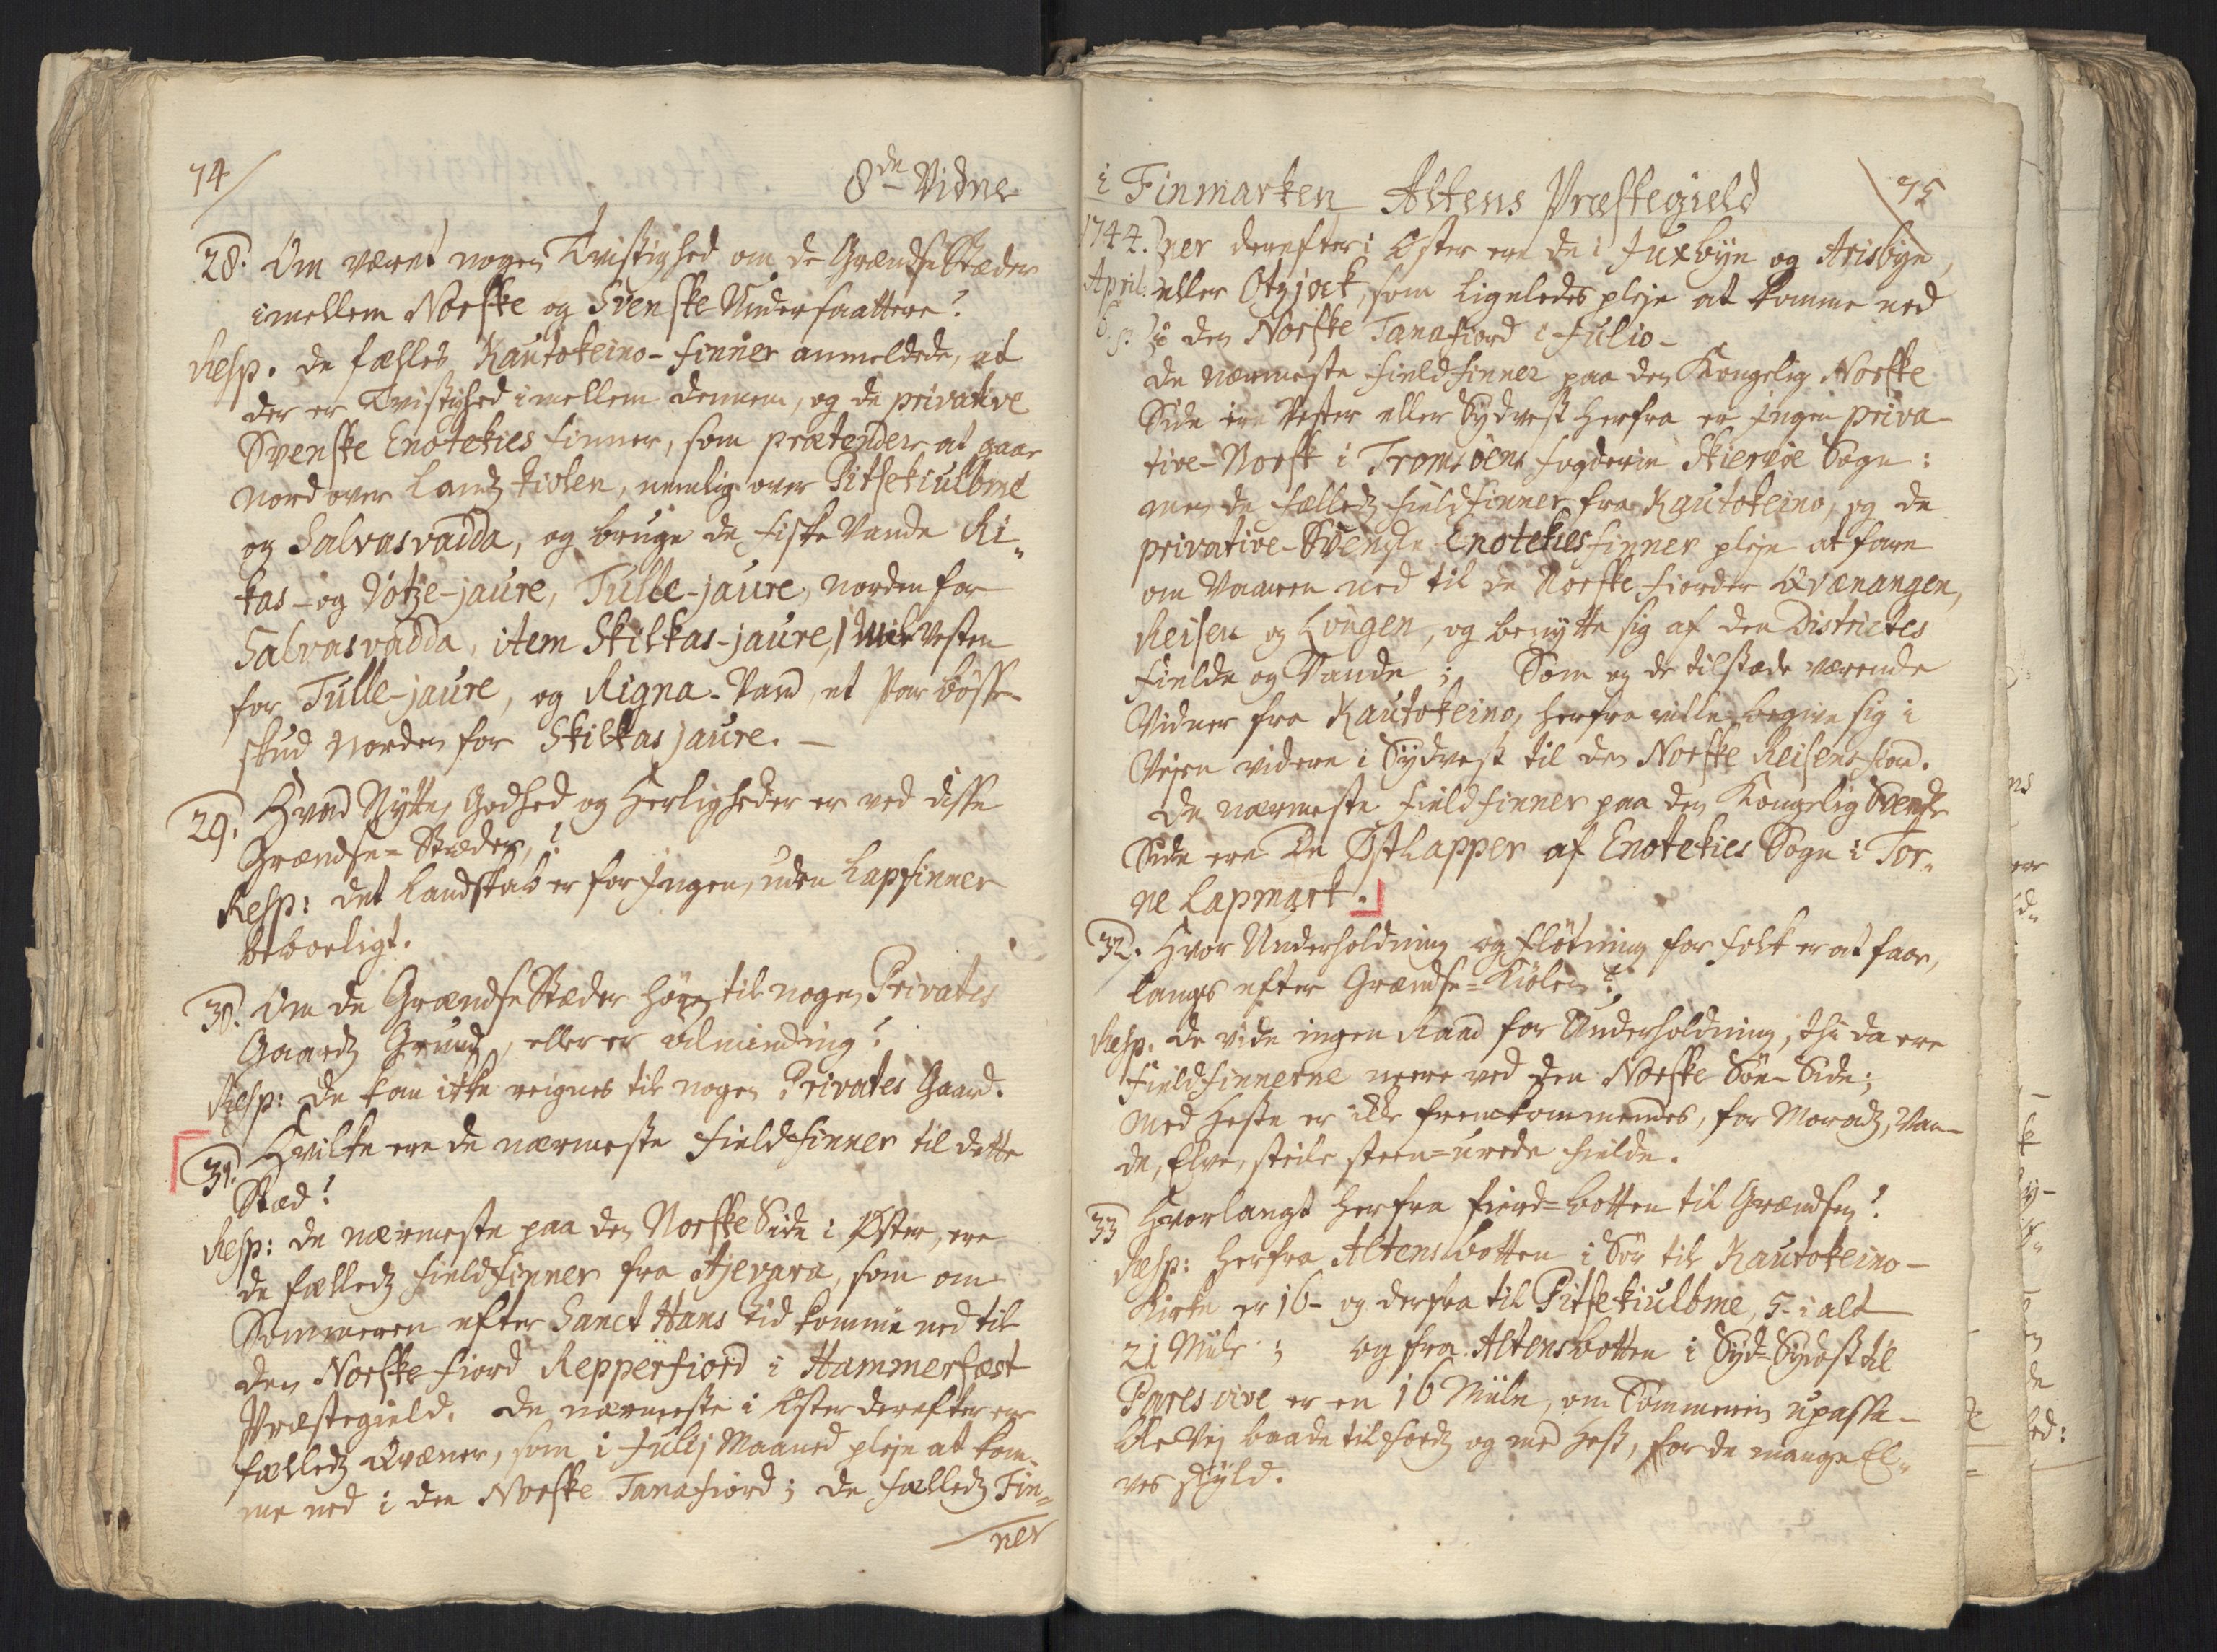 74
8de Vidne
28. Om været nogen Tvistighed om de Grændse Stæder
imellem Norske og Svenske Undersaattere?
Resp. de fælles Kautokeino-finner anmeldede, at
der er Tvistighed imellem dennem, og de privative
Svenske Enotekies finner, som prætendere at gaae
nord over Landz Kiølen, nemlig over Pitsekiulbme
og Salvasvadda, og bruge de fiske Vande Ri„
kas- og Votze-jaure, Tulle-jaure, norden for
Salvasvadda, item Skilkas-jaure, 1 Miil Vesten
for Tulle-jaure, og Rigna-Vand et Par bösse-
skud norden for Skilkasjaure. -
29. Hvad Nytte, Godhed og Herligheder er ved disse
Grændse-Stæder,?
Resp: det Landskab er for Ingen, uden Lapfinner
beboeligt.
30. Om de Grændse Stæder hører til nogen Privates
Gaardz Grund, eller er Alminding?
Resp: de kan ikke reignes til nogen Privates Gaard.
31. Hvilke ere de nærmeste fieldfinner til dette
Stæd?
Resp: de nærmeste paa den Norske Side i Øster, ere
de fælledz fieldfinner fra Ajevara, som om
Sommeren efter Sanct Hans tid komme ned til
den Norske fiord Repperfiord i Hammerfæst
Præstegield. de nærmeste i Øster derefter ere
fælledz Qvæner, som i Julij Maaned pleje at kom„
me ned i den Norske Tanafiord; de fælledz Fin„
ner
i Finmarken Altens Præstegield
75
1744. ner derefter i Øster ere de i Juxbÿe og Arisbye,
April. eller Otzjock, som ligeledes pleje at komme ned
i den Norske Tanafiord i Julio-
de nærmeste fieldfinner paa den Kongelig Norske
Side ere Vester eller Sydvest herfra er Ingen priva-
tive-Norsk i Tromsöens fogderie Skiervöe Sogn:
men de fælledz fieldfinner fra Kautokeino, og de
privative-Svenske Enotekiesfinner pleje at fare
om Vaaren ned til de Norske fiorder Qvænangen,
Reisen og Lyngen, og benytte sig af den Districtes
Fielde og Vande; Som og de tilstæde værende
Vidner fra Kautokeino, herfra ville begive sig i
Vejen videre i Sydvest til den Norske Reisensfiord.
de nærmeste fieldfinner paa den Kongelig Svenske
Side ere De Østlapper af Enotekies Sogn i Tor„
ne Lapmark.
32. Hvor Underholdning og flötning for folk er at faae,
langs efter Grændse-Kiölen?
Resp. de vide ingen Raad for Underholdning, thi da ere
fieldfinnerne nere ved den Norske Söe-Side;
med Heste er ikke fremkommendes, for Moradz, Van-
de, Elve, steile steen-urede fielde.
33 Hvorlangt herfra fiord-botten til Grændsen?
Resp: herfra Altensbotten i Sör til Kautokeino-
Kirke er 16- og derfra til Pitsekiulbme, 5- i alt
21 Mile; og fra Altensbotten i Syd-Sydost til
Pares oive er en 16 Miile, om Sommeren upassa-
ble Vej baade til foedz og med Hest, for de mange El„
ves skyld.